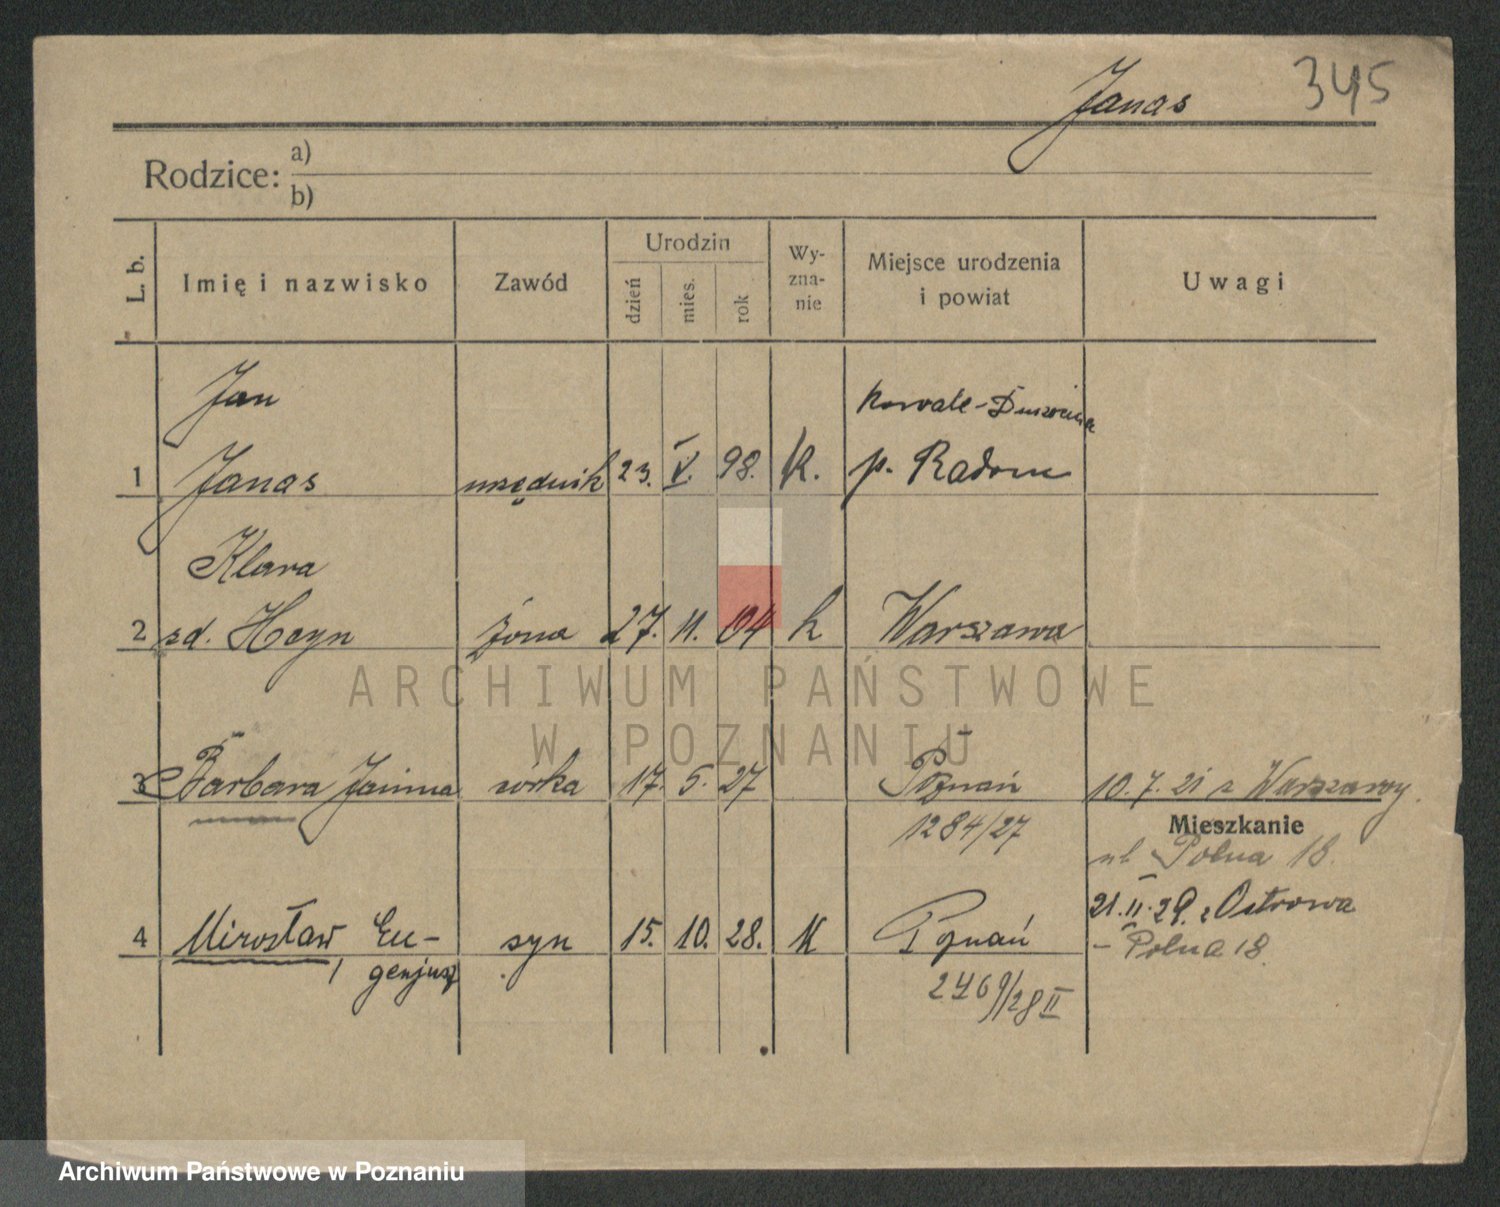 Janas 345
Rodzice: a)
b)
L. b. Imię i nazwisko Zawód Urodzin dzień mies. rok Wy-zna-nie Miejsce urodzenia i powiat Uwagi
Jan Kowale-
1 Janas urzędnik 23. V. 98. k. p. Radom
Klara
2 zd. Heyn żona 27. 11. 04 k Warszawa
3 Barbara Janina córka 17. 5. 27 Poznań 10. 7. 21 z Warszawy
1284/27 Mieszkanie
ul Polna 18.
4 Mirosław, Eu- syn 15. 10. 28. K Poznań 21. II. 29. z Ostrowa
genjusz - Polna 18.
2469/28 II
ARCHIWUM PAŃSTWOWE
W POZNANIU
Archiwum Państwowe w Poznaniu